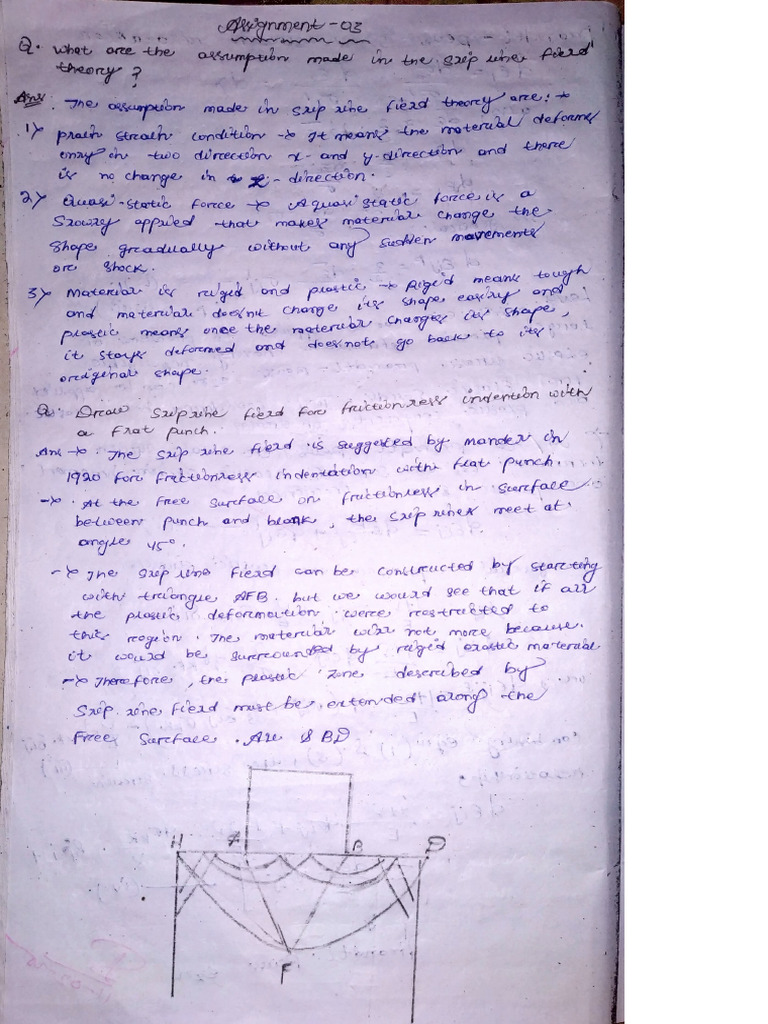 Assignment-03
Q. What are the assumption made in the slip line field
theory?
Ans. The assumption made in slip line field theory are:→
1)→ plain strain condition → It means the material deforms
only in two direction x- and y-direction and there
is no change in z-direction.
2)→ Quasi-static force → A quasi static force is a
slowly applied that makes material change the
shape greadually without any sudden movements
or shock.
3)→ Material is rigid and plastic → Rigid means tough
and material doesn't change its shape easily and
plastic means once the material changes its shape,
it stays deformed and does not go back to its
original shape.
Q. Draw slip line field for frictionless indention with
a flat punch.
Ans →. The slip line field is suggested by in
1920 for frictionless indentation with flat punch.
→. At the free surface on frictionless in surface
between punch and blank, the slip lines meet at
angle 45°.
→ The slip line field can be constructed by starting
with triangle AFB. but we would see that if all
the plastic deformation were restructed to
this region. The material will not move because.
it would be surrounded by rigid elastic material
→ Therefore, the plastic zone described by
slip line field must be extended along the
free surface. AH & BD
H A B D
F